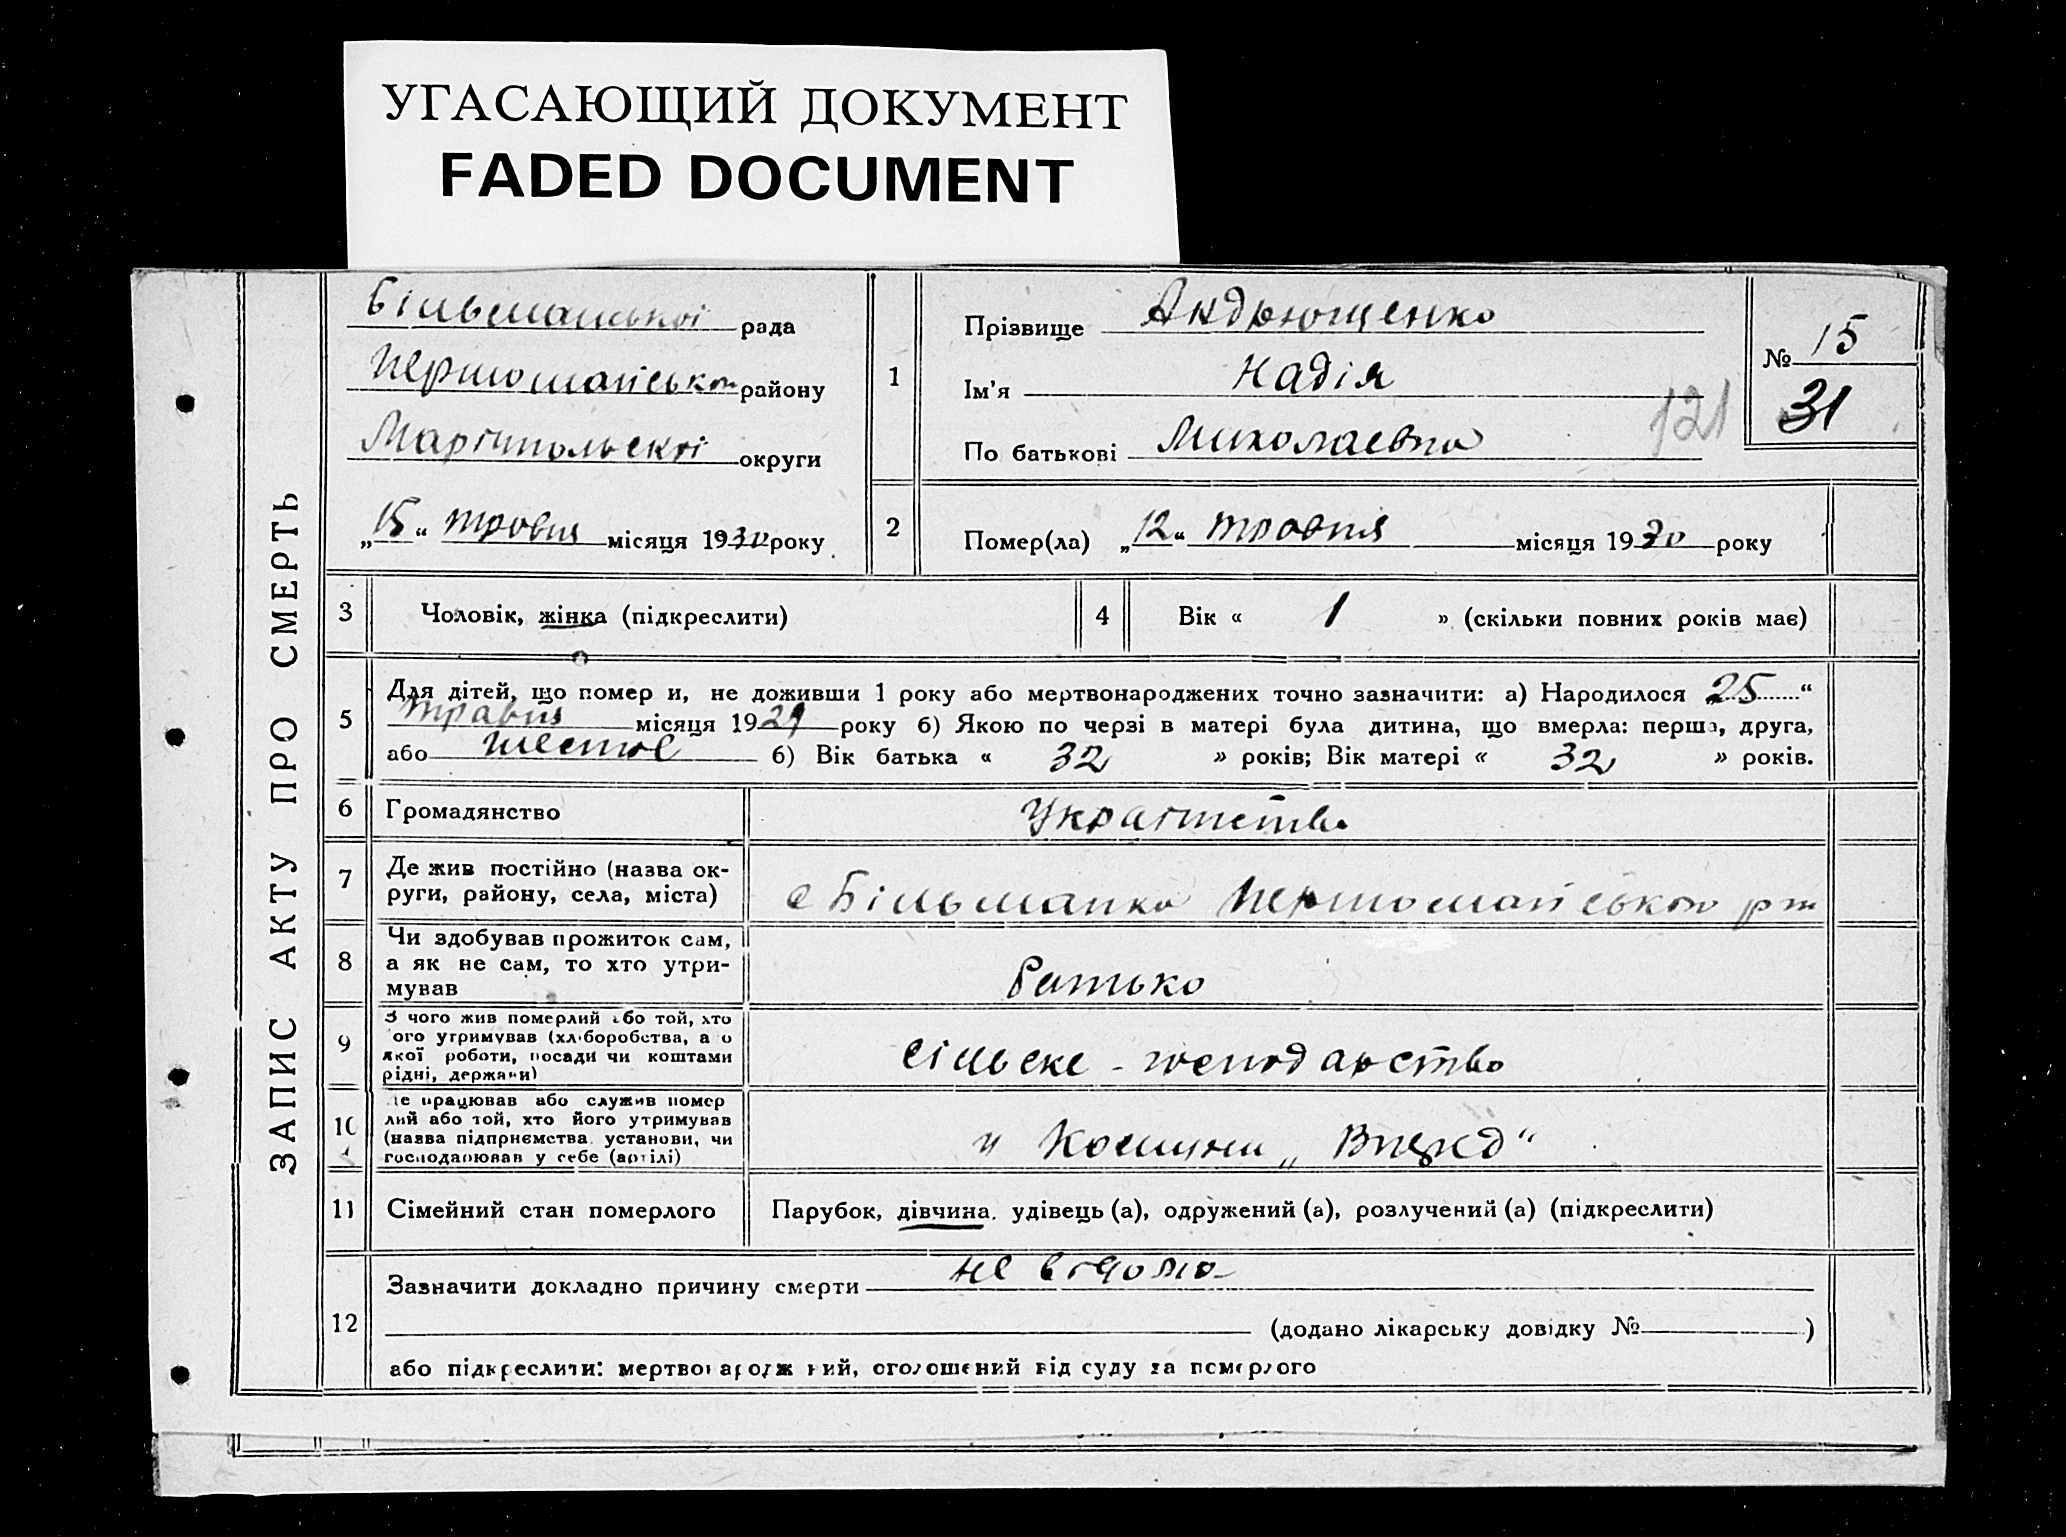 УГАСАЮЩИЙ ДОКУМЕНТ
FADED DOCUMENT
ЗАПИС АКТУ ПРО СМЕРТЬ
Більманської рада
Першомайського району
Маріюпольскої округи
„15“ травня місяця 1930 року
1
Прізвище Андрющенко
Ім'я Надія
По батькові Миколаевна
121
№ 15
31
2
Помер(ла) „12“ травня місяця 1930 року
3 Чоловік, жінка (підкреслити)
4 Вік « 1 » (скільки повних років має)
5
Для дітей, що помер и, не доживши 1 року або мертвонароджених точно зазначити: а) Народилося „25“
травня місяця 1929 року б) Якою по черзі в матері була дитина, що вмерла: перша, друга,
або шестое б) Вік батька « 32 » років; Вік матері « 32 » років.
6 Громадянство
7 Де жив постійно (назва ок-
руги, району, села, міста)
с Більманка Першомайського
8
Чи здобував прожиток сам,
а як не сам, то хто утри-
мував
батько
9
З чого жив померлий або той, хто
ого утримував (хліборобства, а о
якої роботи, посади чи коштами
рідні, держави)
сільске - господарство
10
де працював або служив помер
лий або той, хто його утримував
(назва підприємства установи, чи
господарював у себе (артілі)
у Комуни „
11 Сімейний стан померлого
Парубок, дівчина, удівець (а), одружений (а), розлучений (а) (підкреслити)
12
Зазначити докладно причину смерти не відомо
(додано лікарську довідку № )
або підкреслити: мертвонароджений, оголошений від суду за померлого